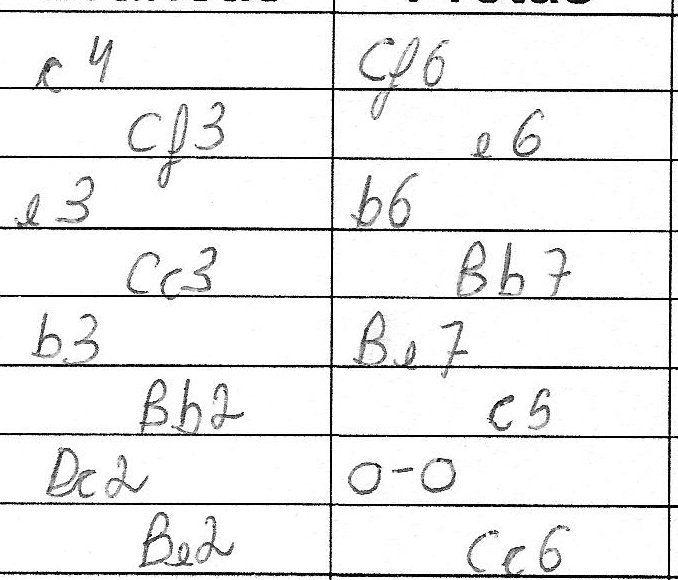 c4 Cf6
Cf3 e6
e3 b6
Cc3 Bb7
b3 Be7
Bb2 c5
Dc2 0-0
Be2 Cc6